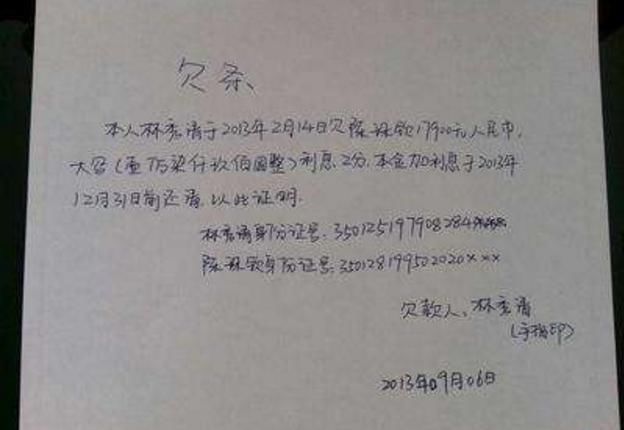 欠条
本人林秀清于2013年2月14日欠陈珠钦17900元人民币,
大写(壹万柒仟玖佰圆整)利息2分.本金加利息于2013年
12月31日前还清.以此证明.
林秀清身份证号:350125197908284
陈珠钦身份证号:350128199502020×××
欠款人:林秀清
(手指印)
2013年9月06日